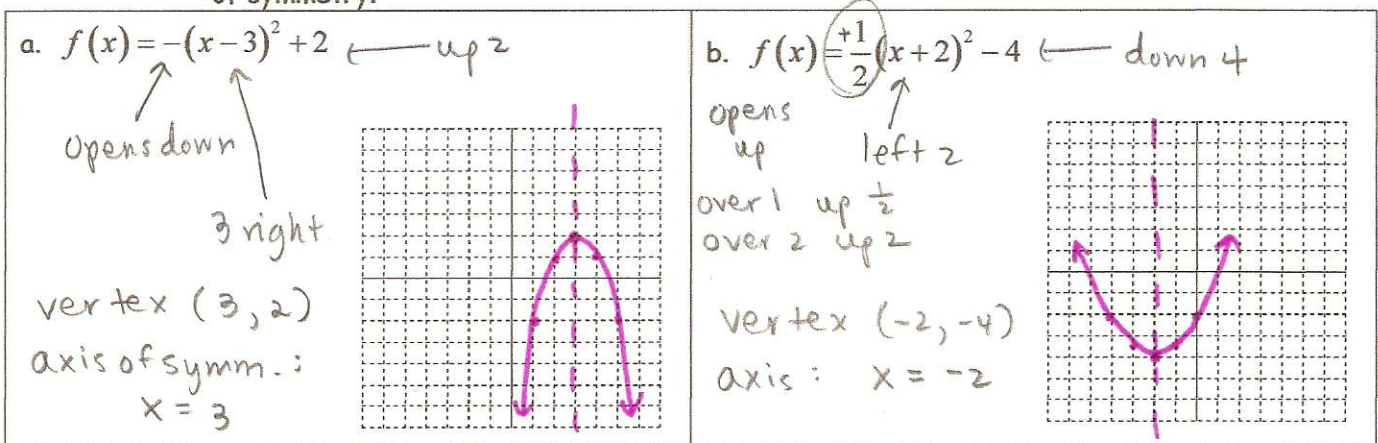 of symmetry.
a. f(x) = -(x-3)² + 2 ← up 2
opens down
3 right
vertex (3, 2)
axis of symm. :
x = 3
b. f(x) = +1/2 (x+2)² - 4 ← down 4
opens
up
left 2
over 1 up 1/2
over 2 up 2
vertex (-2, -4)
axis : x = -2